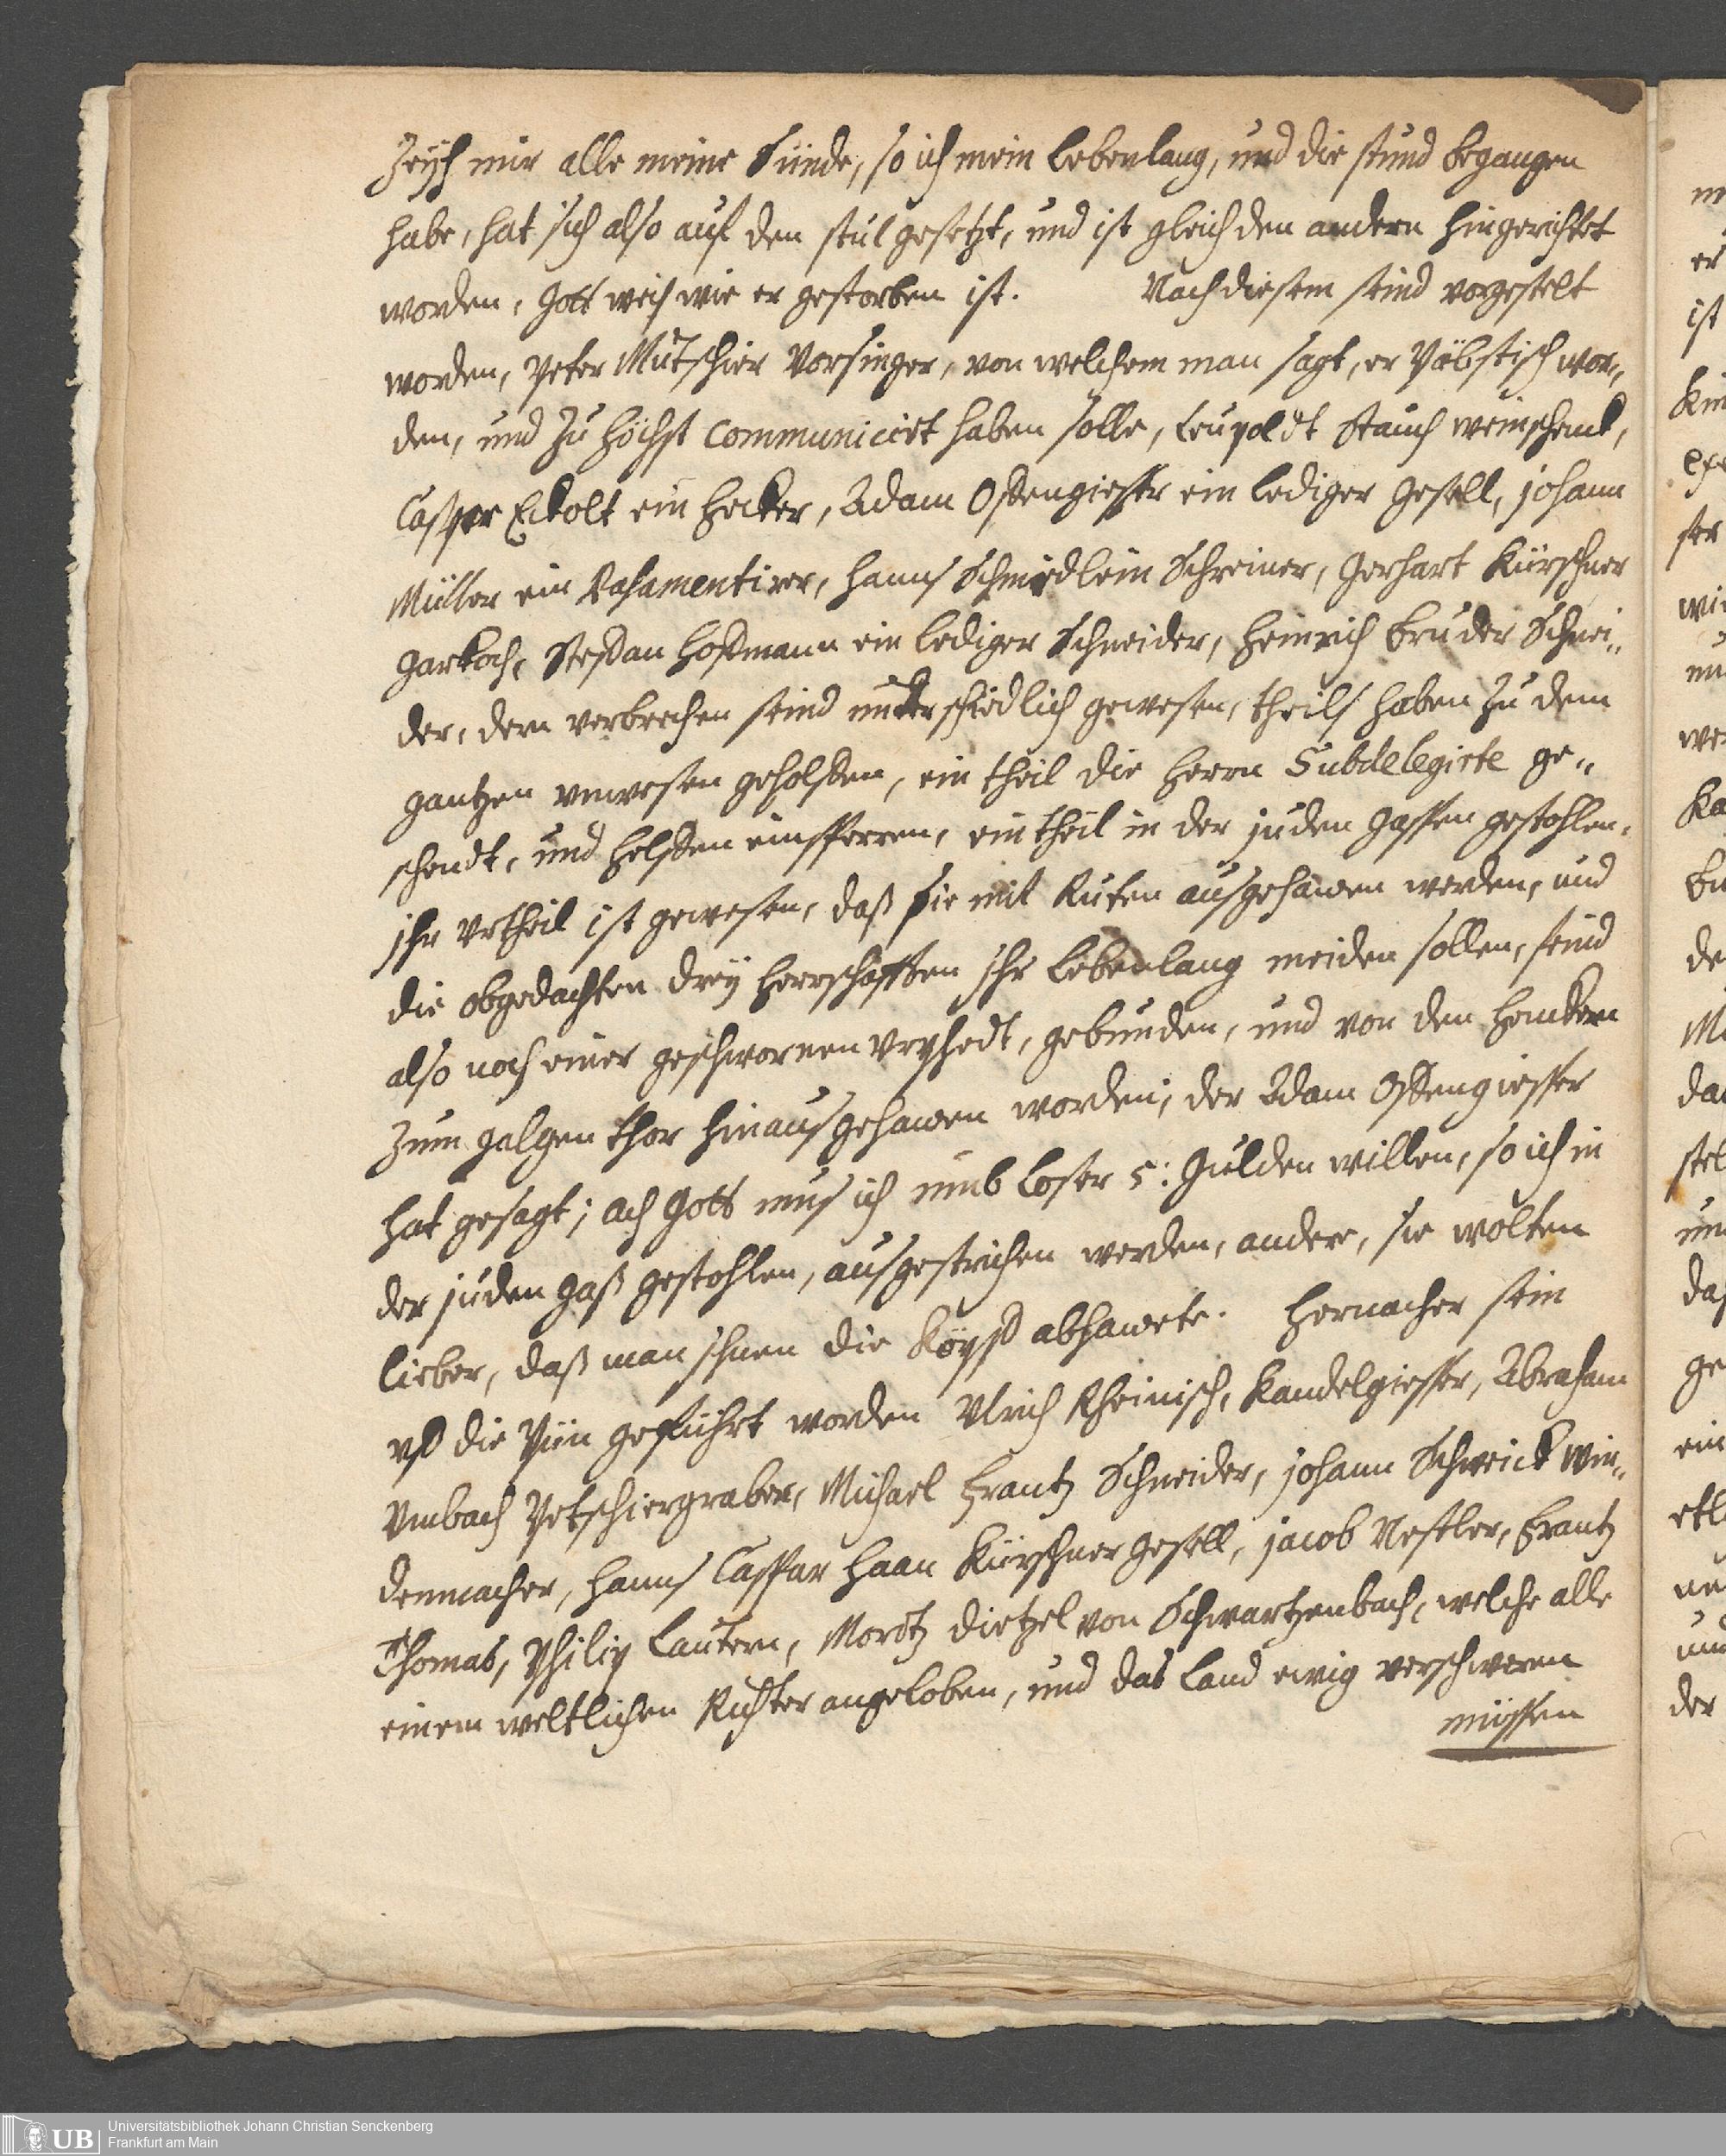 Zeyh mir alle meine Sünde, so ich mein Lebenlang, und die stund begangen
habe, hat sich also auf den stul gesetzt, und ist gleich den andern hingerichtet
worden, Gott weis wie er gestorben ist. Nach diesem seind vorgestelt
worden, Peter Mutschier Vorsinger, von welchem man sagt, er Päbstisch wor„
den, und zu Höchst Communicirt haben solle, Leupoldt Stauch weinschenck,
Casper Eckolt ein Hecker, Adam Offengiesser ein lediger Gesell, Johann
Müller ein Pasamentirer, Hanns Schmidlein Schreiner, Gerhart Kürschner
Garkoch, Steffan Hoffmann ein lediger Schneider, Heinrich Bruder Schnei„
der, dern verbrechen seind unterschiedlich gewesen, theils haben zu dem
gantzen unwesen geholffen, ein theil die Herrn Subdelegirte ge„
schendt, und helffen einsperren, ein theil in der Juden Gassen gestohlen,
ihr Urtheil ist gewesen, daß sie mit Ruten ausgehawen werden, und
die obgedachten drey Herrschafften ihr Lebenlang meiden sollen, seind
also noch einer geschwornen Urphedt, gebunden, und von den Henckern
zum Galgen thor hinausgehawen worden, der Adam Offengiesser
hat gesagt; ach Gott mus ich umb loser 5: Gulden willen, so ich in
der Juden Gaß gestohlen, ausgestrichen werden, andere, sie wolten
lieber, daß man ihnen die Köpff abhawete. Hernacher sein
uff die Pün geführt worden Ulrich Rheinisch, Kandelgiesser, Abraham
Umbach Petschiergraber, Michael Frantz Schneider, Johann Schweick Win„
denmacher, Hanns Caspar Haan Kürschner Gesell, Jacob Nestler, Frantz
Thomas, Philip Lautern, Moritz Dietzel von Schwartzenbach, welche alle
einem weltlichen Richter angeloben, und das Land ewig verschweren
müssen
m
er
ist
Kin
ser
wi
we
Ka
de
M
da
stel
daß
ge
ein
etl
der
UB Universitätsbibliothek Johann Christian Senckenberg
Frankfurt am Main